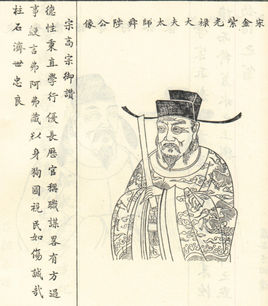 宋金紫光祿大夫太師舜陸公像
宋高宗御讚
德性秉直學行優長歷官稱職謀畧有方遇
事 言弗阿弗藏以身狥國視民如傷誠哉
柱石濟世忠良